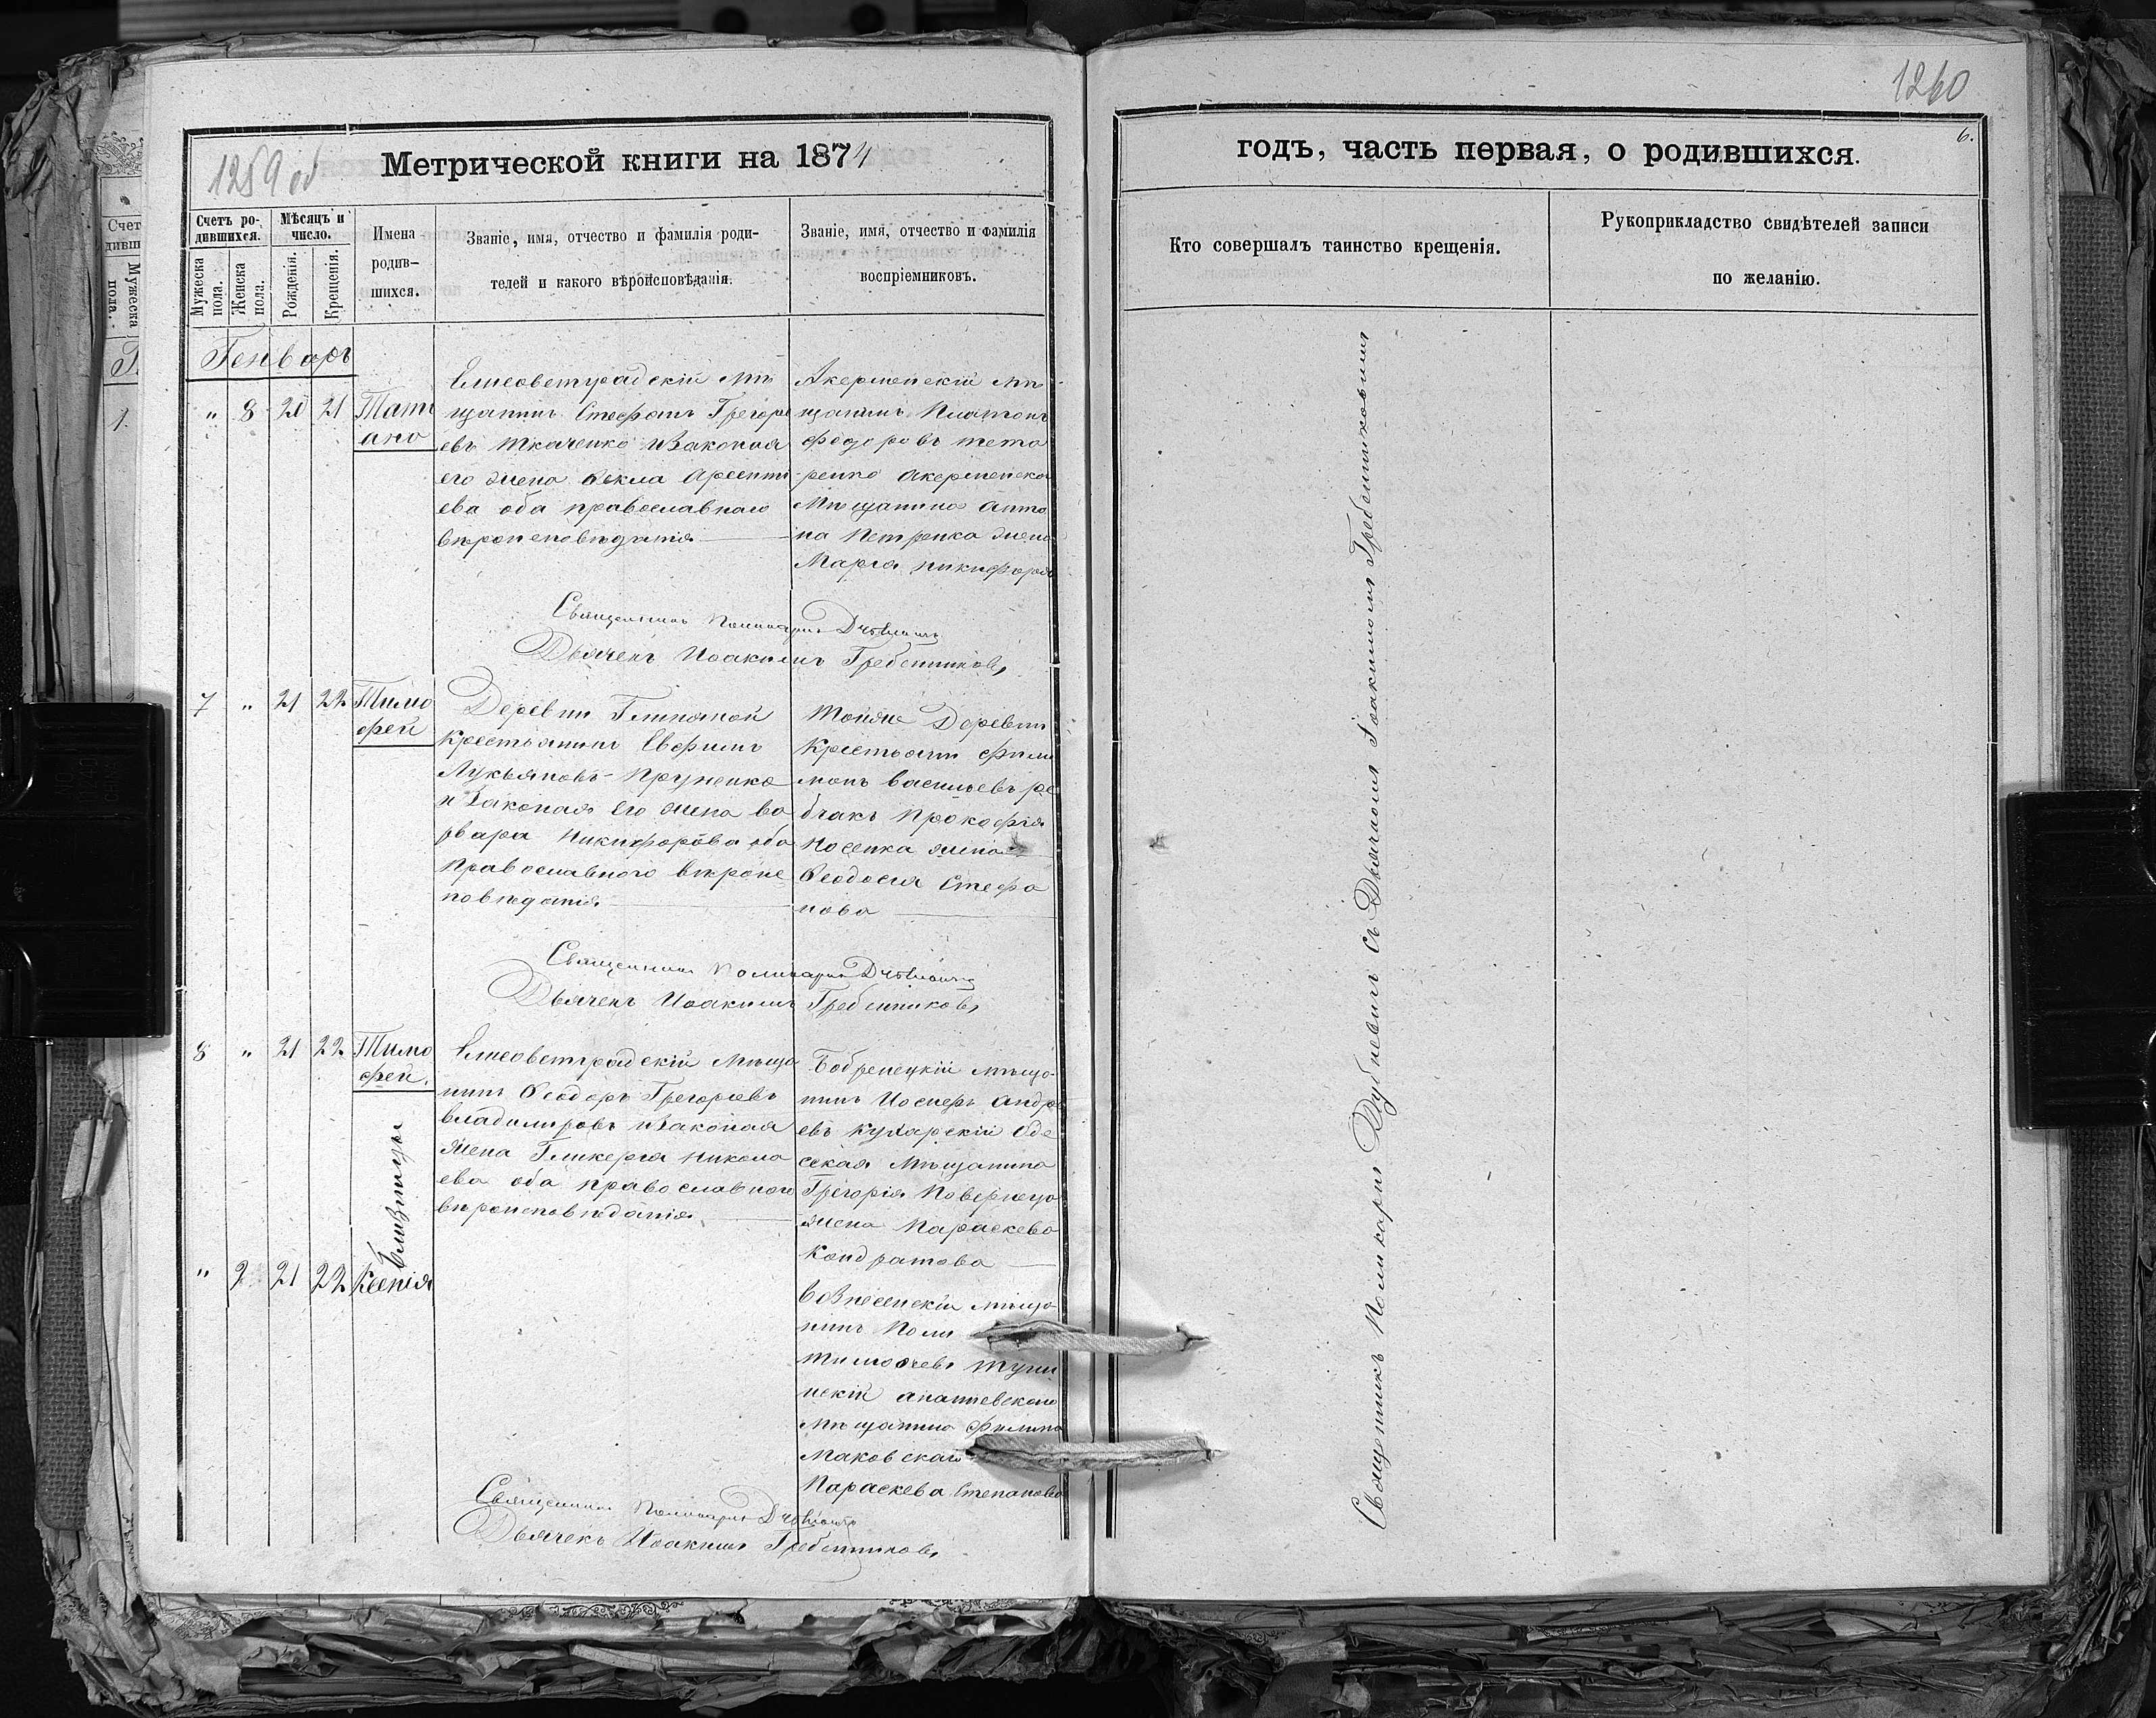 1259 об
Метрической книги на 1874
Счетъ ро-
дившихся.
Мужеска пола.
Женска пола.
Мѣсяцъ и
число.
Рожденія.
Крещенія.
Имена
родив-
шихся.
Званіе, имя, отчество и фамилія роди-
телей и какого вѣроисповѣданія.
Званіе, имя, отчество и фамилія
воспріемниковъ.
Генварь
" 8 20 21 Тати
ана
Елисоветградскій мѣ
щанинъ Стефанъ Григорі
евъ Ткаченко и законая
его жена Ѳекла Арсенті
ева оба православнаго
вѣроисповѣданія
Акерменскій мѣ
щанинъ Платонъ
Федоровъ тета
ренко акерменска
мѣщанина Анто
на Петренка жена
Марѳа Никифоров
Священникъ Поликарпъ
Дьячекъ Иоакимъ Гребенниковъ
7 " 21 22 Тимо
фей
Деревни Глиняной
крестьянинъ Евфимъ
Лукьяновъ Пруненко
и законая его жена Ва
рвара Никифорова оба
православнаго вѣроис
повѣданія
тойже Деревни
крестьяни Фили
монъ Васильевъ ре
бчакъ Прокофія
Носенка жена
Ѳеодосія Стефа
нова
Священникъ Поликарпъ
Дьячекъ Иоакимъ Гребенниковъ
8 " 21 22 Тимо
фей.
Близнецы
Елисоветградскій мѣща
нинъ Ѳеодоръ Григоріевъ
Владимировъ и законая
жена Гликерія Никола
ева оба православнаго
вѣроисповѣданія
Бобренецкій мѣща
нинъ Иосифъ Андре
евъ Кухарскій Оде
сская мѣщанина
Григорія Поверница
жена Параскева
Кондратова
" 9 21 22 Ксенія
Вознесенскій мѣща
нинъ Поли
Тимофеевъ
нскій ананіевскаго
мѣщанина Филипа
Маковскаго
Параскева Степанова
Священникъ Поликарпъ
Дьячекъ Иоакимъ Гребенниковъ
1260
6.
годъ, часть первая, о родившихся.
Кто совершалъ таинство крещенія.
Рукоприкладство свидѣтелей записи
по желанію.
Священникъ Поликарпъ Дубневичъ съ Дьячкомъ Іоакимомъ Гребенниковымъ
Счет
дивш
Мужеска
пола.
1.